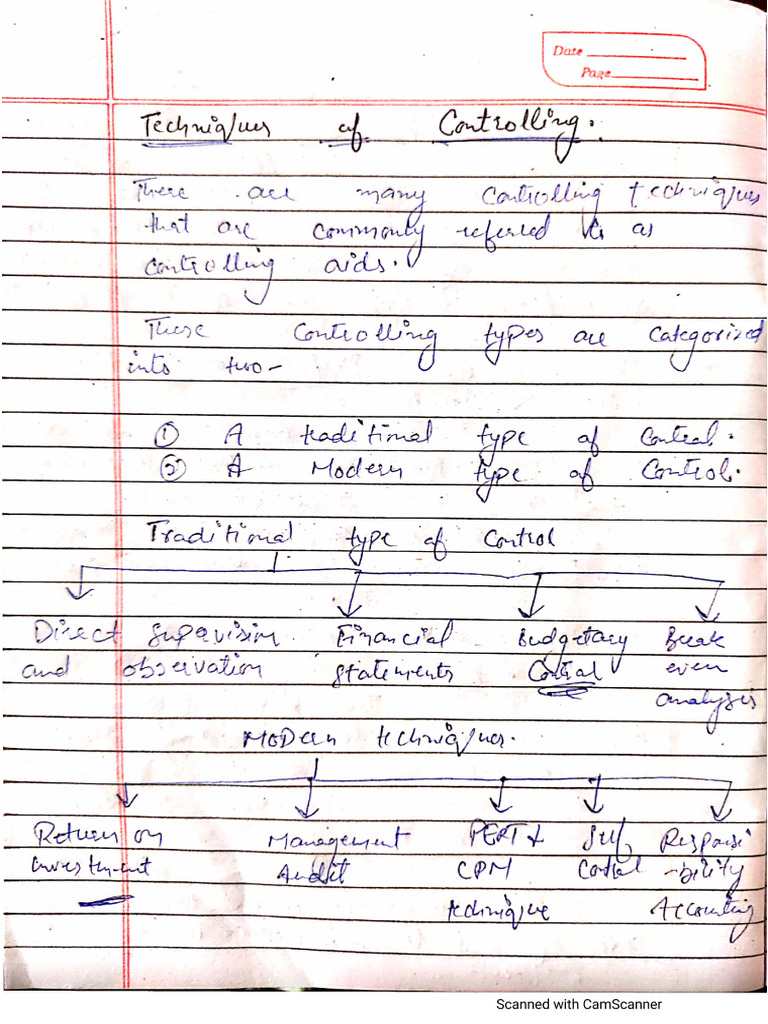 Date
Page
Techniques of Controlling.
There are many Controlling techniques
that are commonly referred to as
controlling aids.
These Controlling types are Categorized
into two-
① A traditional type of Control.
② A Modern type of Control.
Traditional type of Control
Direct Supervision Financial Budgetary Break
and observation statements Control even
analysis
Modern techniques.
Return on Management PERT & Self Responsi
investment Audit CPM Control -bility
technique Accounting
Scanned with CamScanner